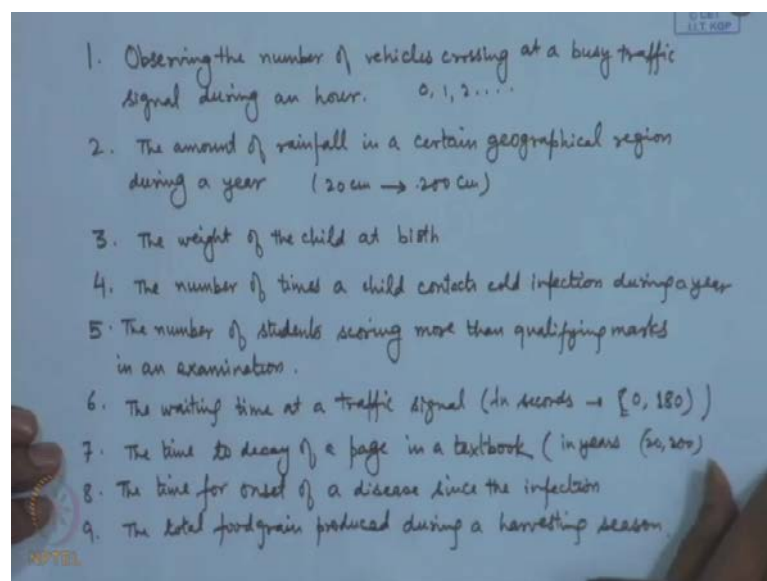 © CET
I.I.T. KGP
1. Observing the number of vehicles crossing at a busy traffic
signal during an hour. 0, 1, 2....
2. The amound of rainfall in a certain geographical region
during a year (20 cm → 200 cm)
3. The weight of the child at birth
4. The number of times a child contacts cold infection during a year
5. The number of students scoring more than qualifying marks
in an examination.
6. The waiting time at a traffic signal (In seconds → [0, 180))
7. The time to decay of a page in a textbook (in years (20, 200)
8. The time for onset of a disease since the infection
9. The total foodgrain produced during a harvesting season.
NPTEL